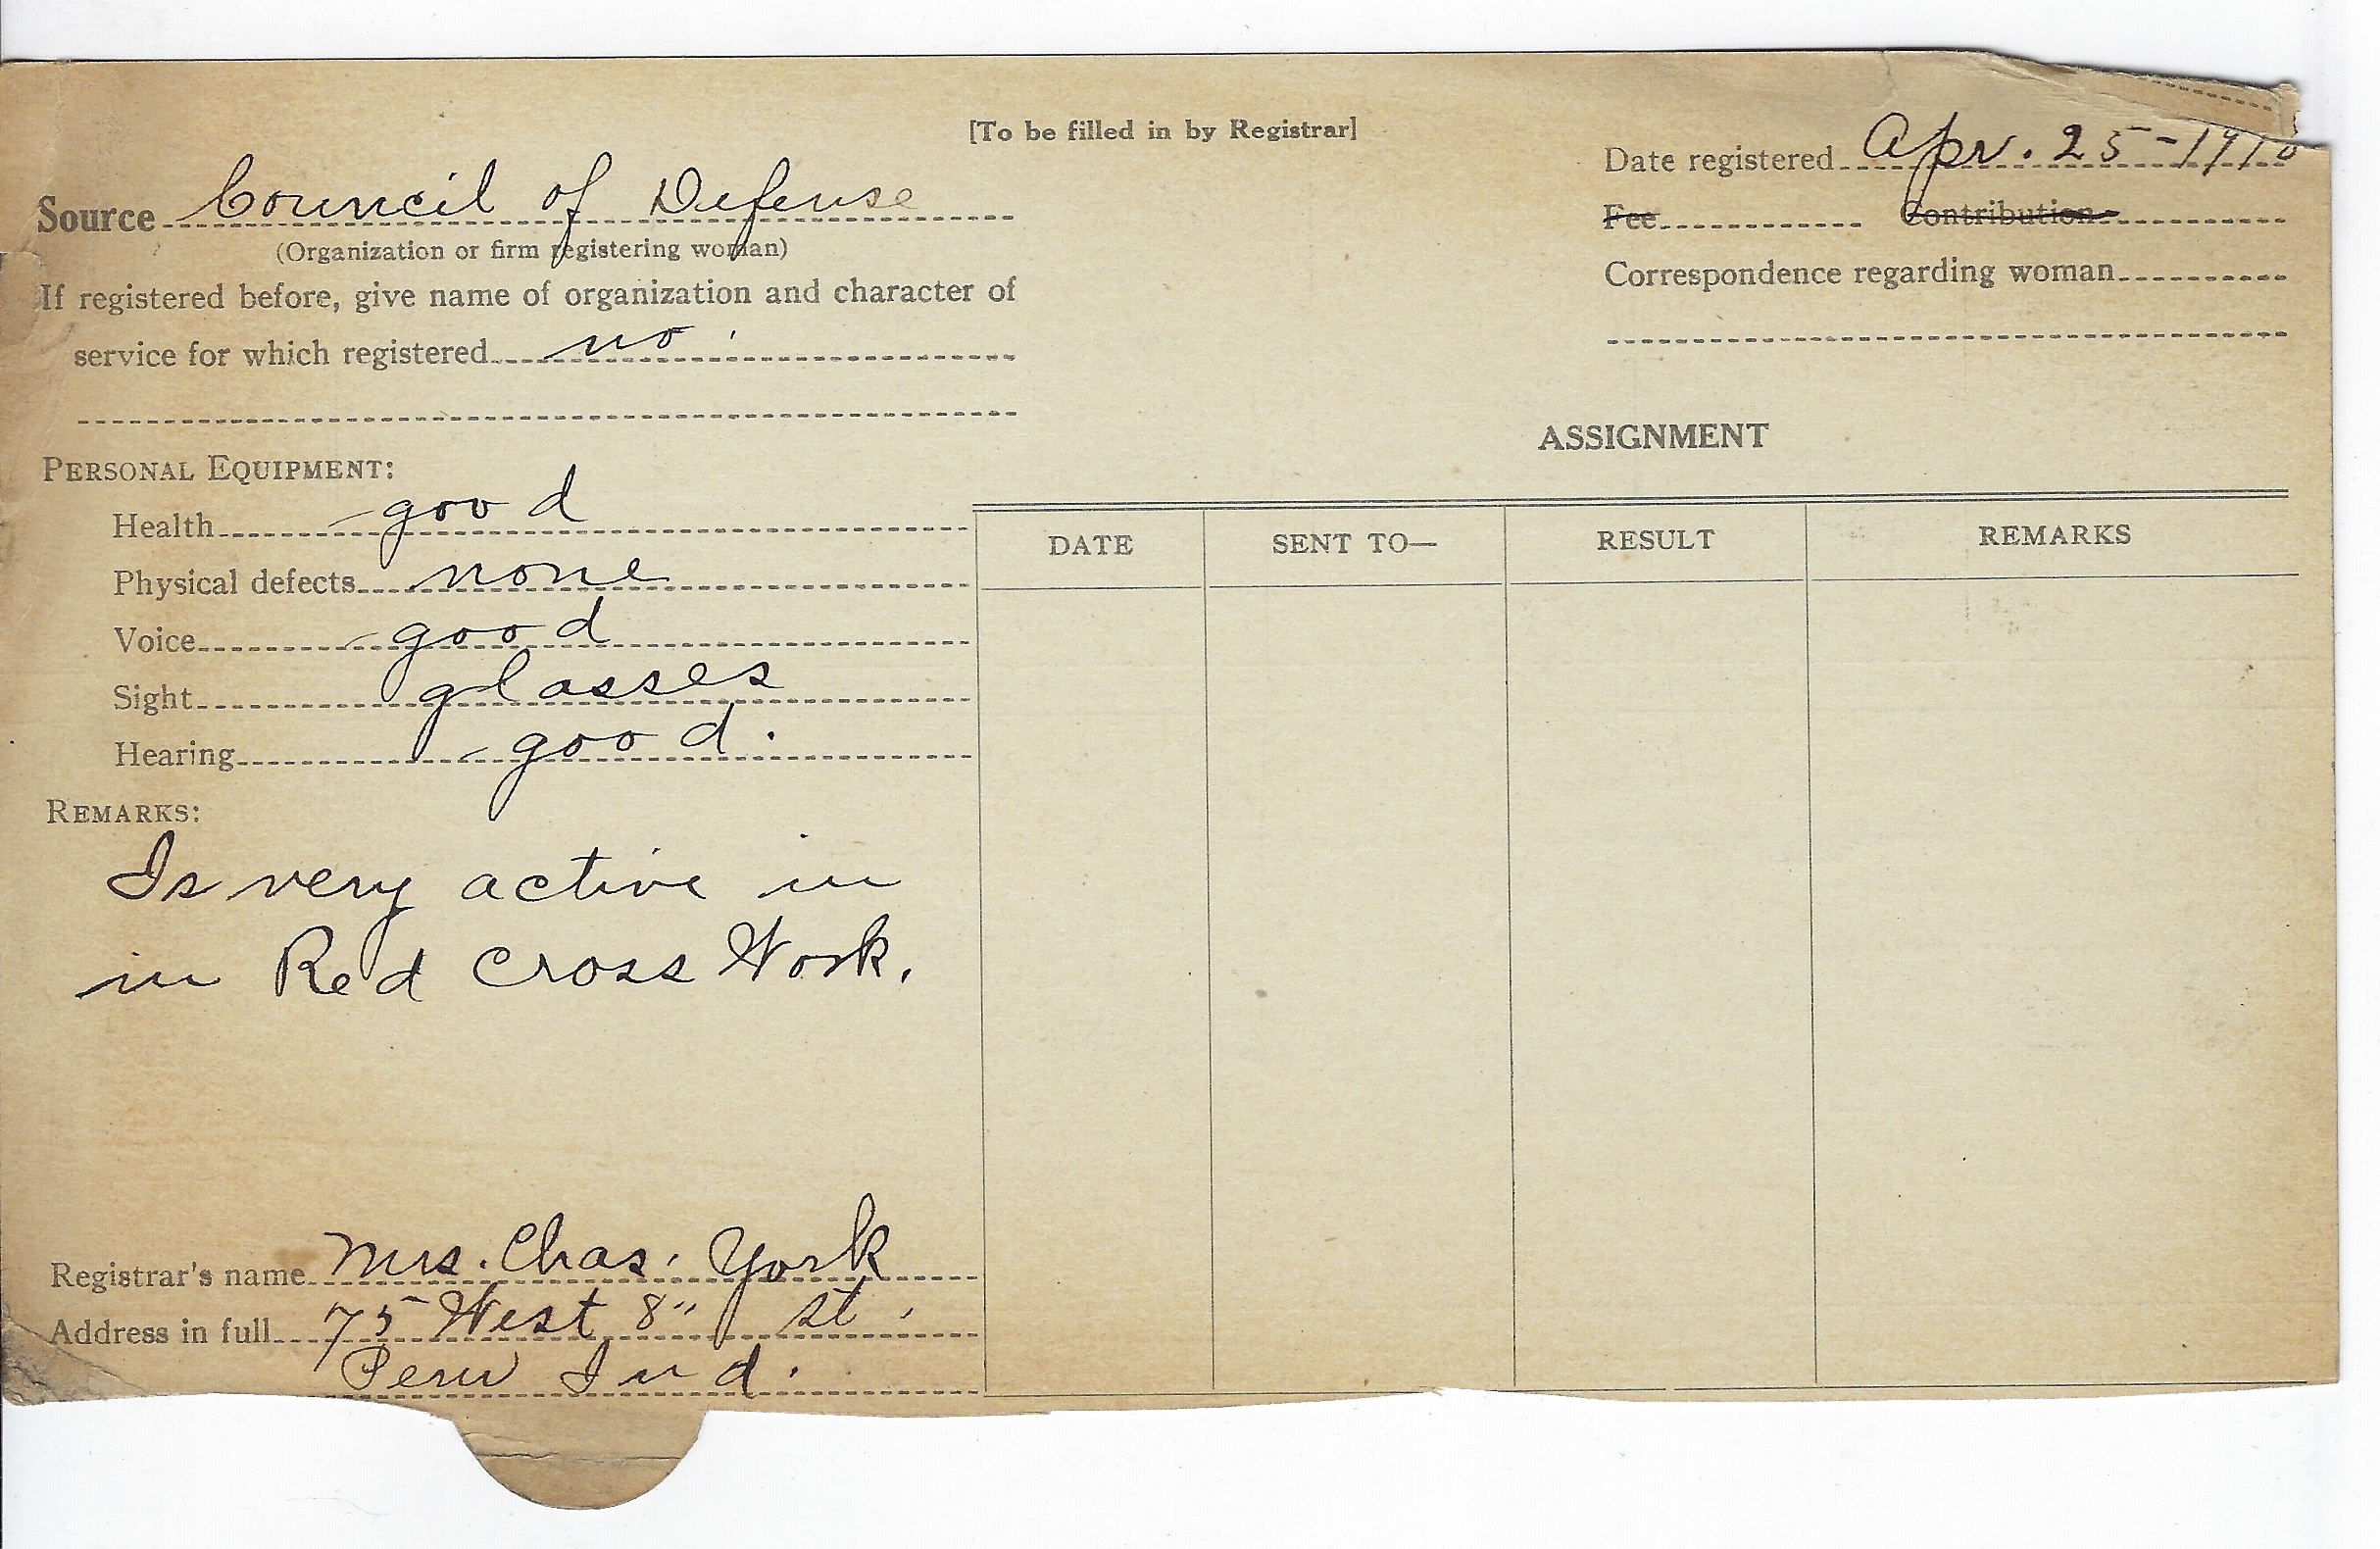 [To be filled in by Registrar]
Source Council of Defense
(Organization or firm registering woman)
If registered before, give name of organization and character of
service for which registered no.
Date registered Apr. 25-1918
Fee Contribution
Correspondence regarding woman
PERSONAL EQUIPMENT:
Health good
Physical defects none
Voice good
Sight glasses
Hearing good.
REMARKS:
Is very active in
in Red Cross Work.
Registrar's name Mrs. Chas. York
Address in full 75 West 8" St.
Peru Ind.
ASSIGNMENT
DATE SENT TO— RESULT REMARKS